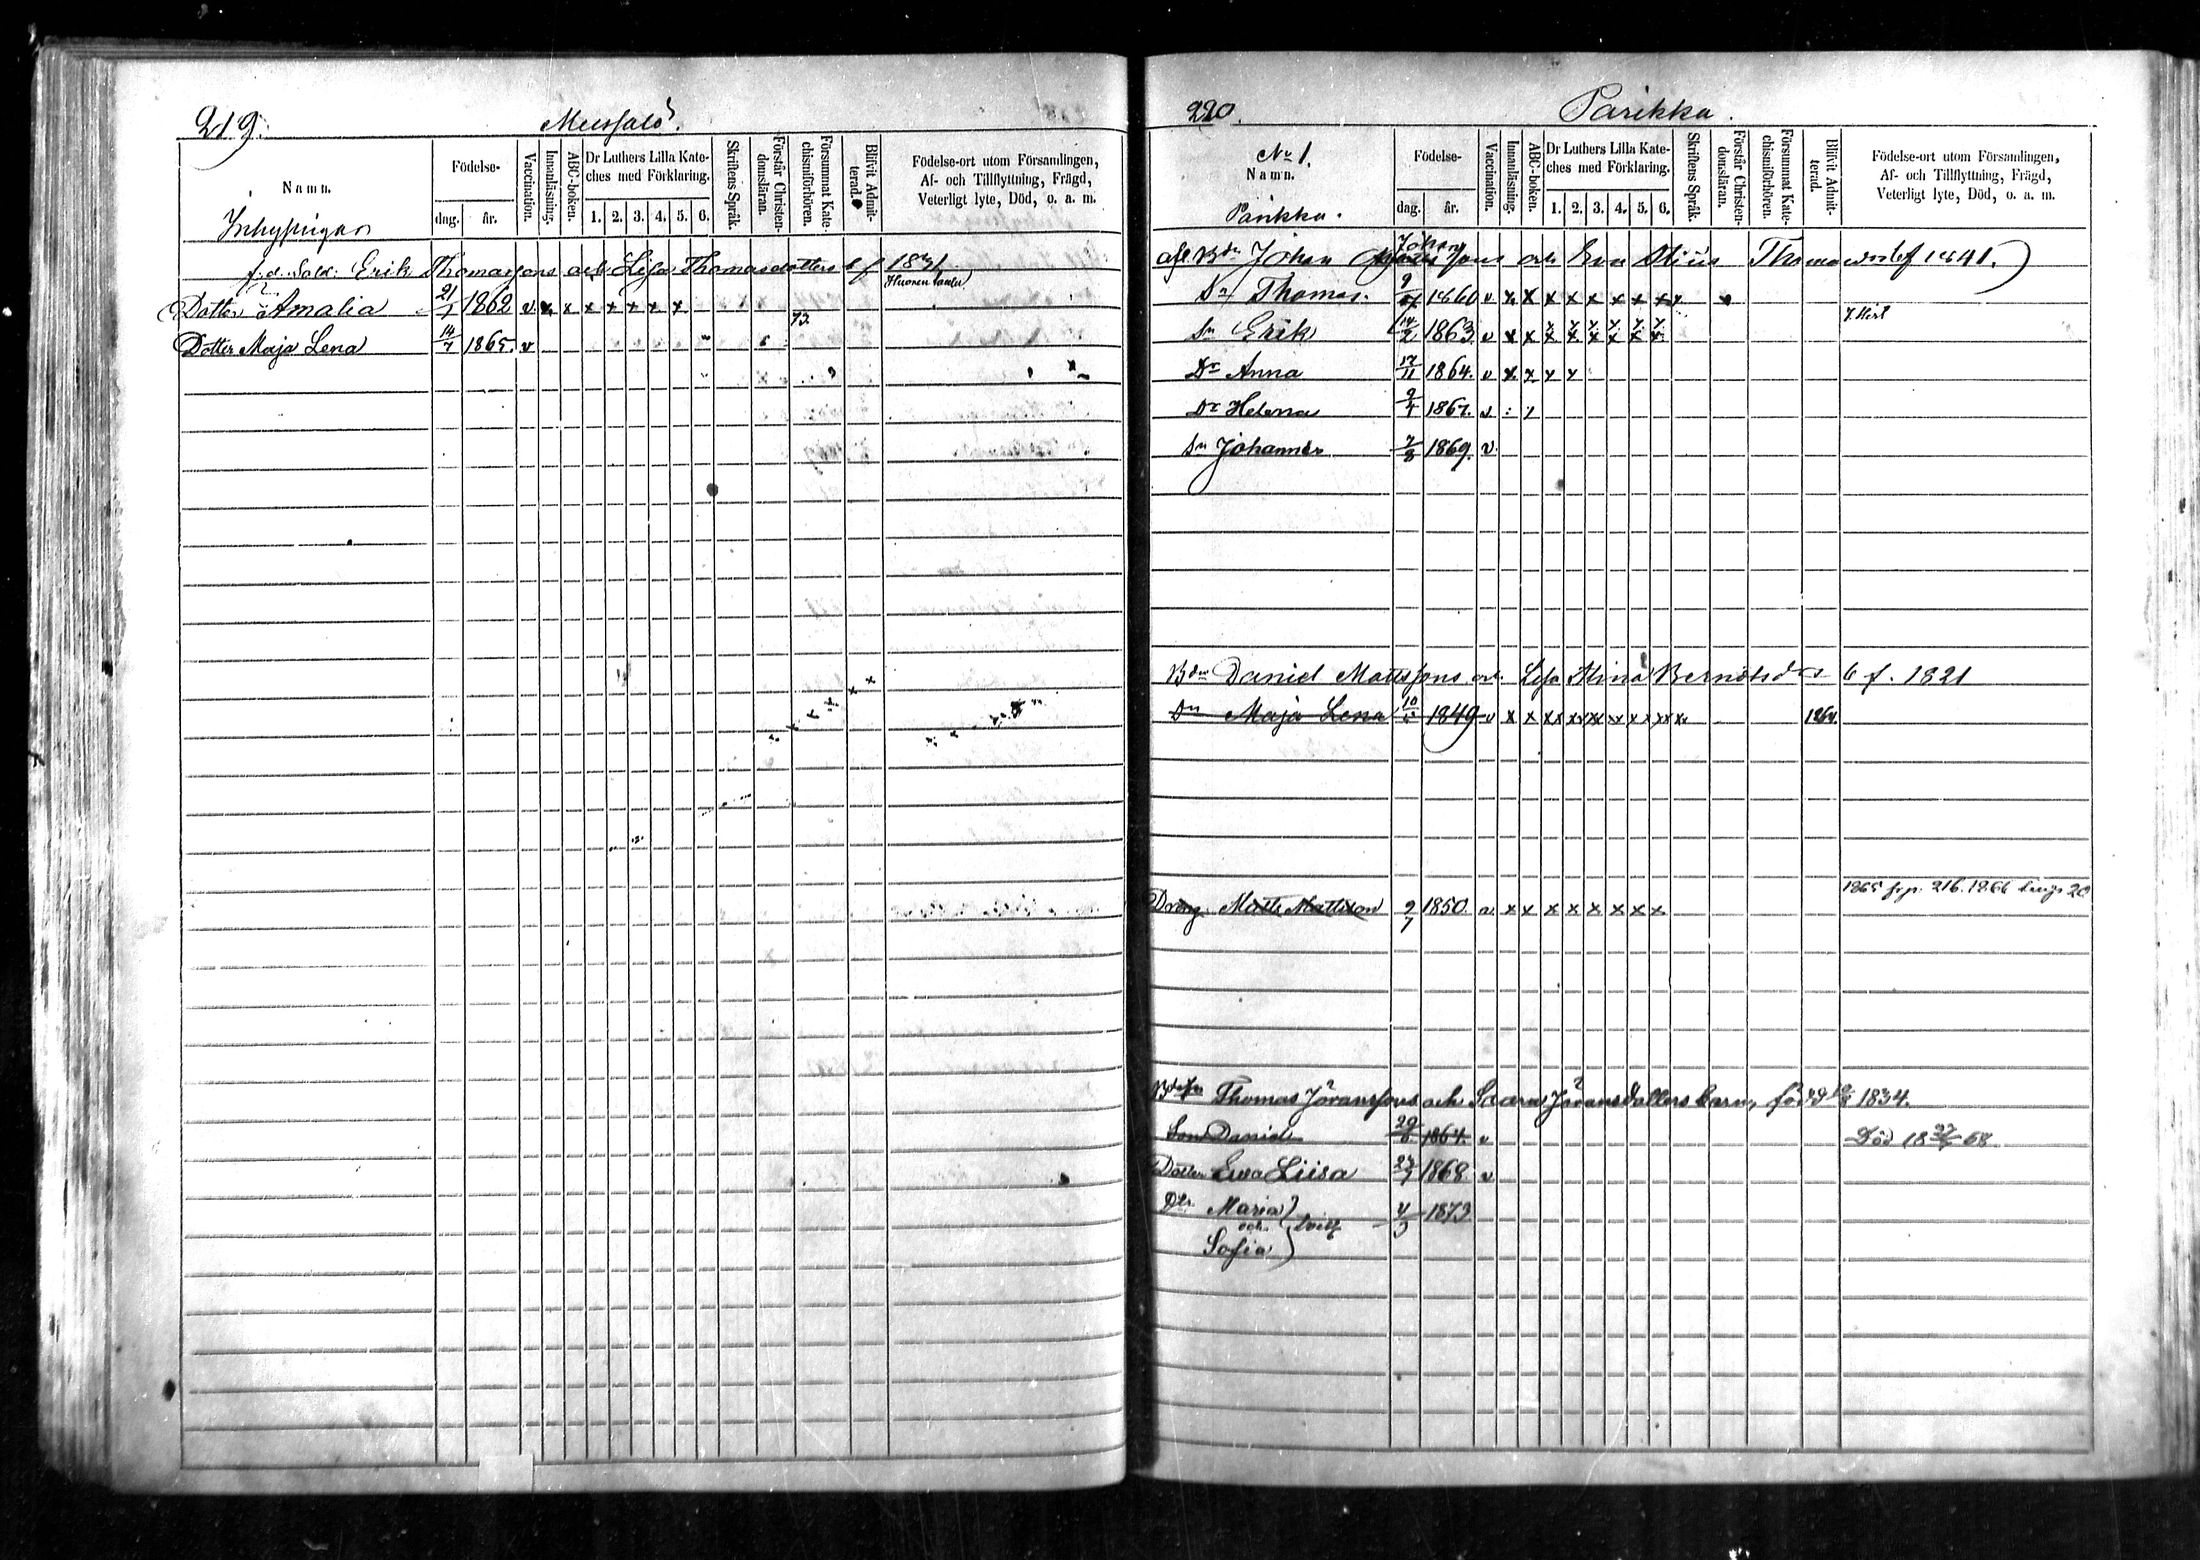 219.
Mussalö.
Namn.
Inhysingar
Födelse-
dag.
år.
Vaccination.
Innanläsning.
ABC-boken.
Dr Luthers Lilla Kate-
ches med Förklaring.
1. 2. 3. 4. 5. 6.
Skriftens Språk.
Förstår Christen-
domsläran.
Försummat Kate-
chismiförhören.
Blifvit Admit-
terad.
Födelse-ort utom Församlingen,
Af- och Tillflyttning, Frägd,
Veterligt lyte, Död, o. a. m.
f.d. Sold. Erik Thomassons och Lisa Thomasdotters b f
Dotter Amalia 21/1 1862 v. x x x x x x x
73.
Dotter Maja Lena 14/7 1865. v
220.
Parikka.
No 1.
Namn.
Parikka.
Födelse-
dag.
år.
Vaccination.
Innanläsning.
ABC-boken.
Dr Luthers Lilla Kate-
ches med Förklaring.
1. 2. 3. 4. 5. 6.
Skriftens Språk.
Förstår Christen-
domsläran.
Försummat Kate-
chismiförhören.
Blifvit Admit-
terad.
Födelse-ort utom Församlingen,
Af- och Tillflyttning, Frägd,
Veterligt lyte, Död, o. a. m.
Johan
Bdn Johan sons och Eva Thoma 1841.
Sn Thomas. 1860 v x x x x x x x x x
Sn Erik 14/2 1863. v x x x x x x x x
Dr Anna 17/11 1864. v x x x x
Dr Helena 9/4 1867. v
Sn Johannes 7/8 1869. v.
Bdn Daniel Mattssons och Lisa Stina b f. 1821
Dr Maja Lena 10/5 1849 v x x xx xx xx xx xx xx x 1864.
1865 frp. 216. 1866
Dräng Matts Mattsson 9/7 1850. v x x x x x x x x
Thomas Göranssons och Saara Göransdotters barn, född 1834.
Son Daniel 1864. v Död 18 68.
Dotter Ewa Liisa 27/7 1868. v
Dtr Maria 4/3 1873
och
Sofia